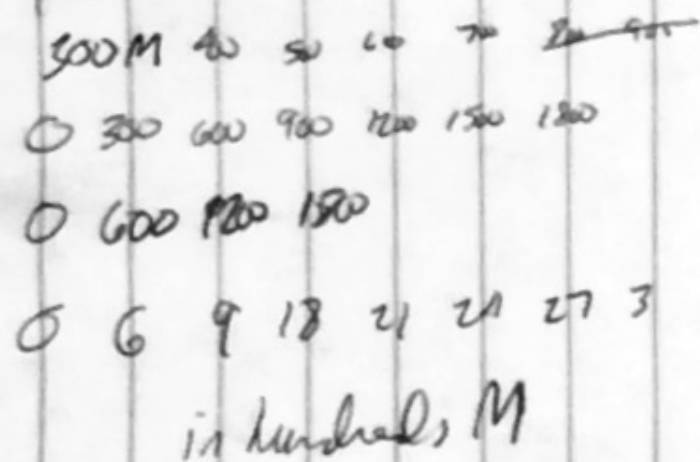 300 M 400 500 600 700
0 300 600 900 1200 1500 1800
0 600 1200 1800
0 6 9 18 21 24 27 3
in hundreds M